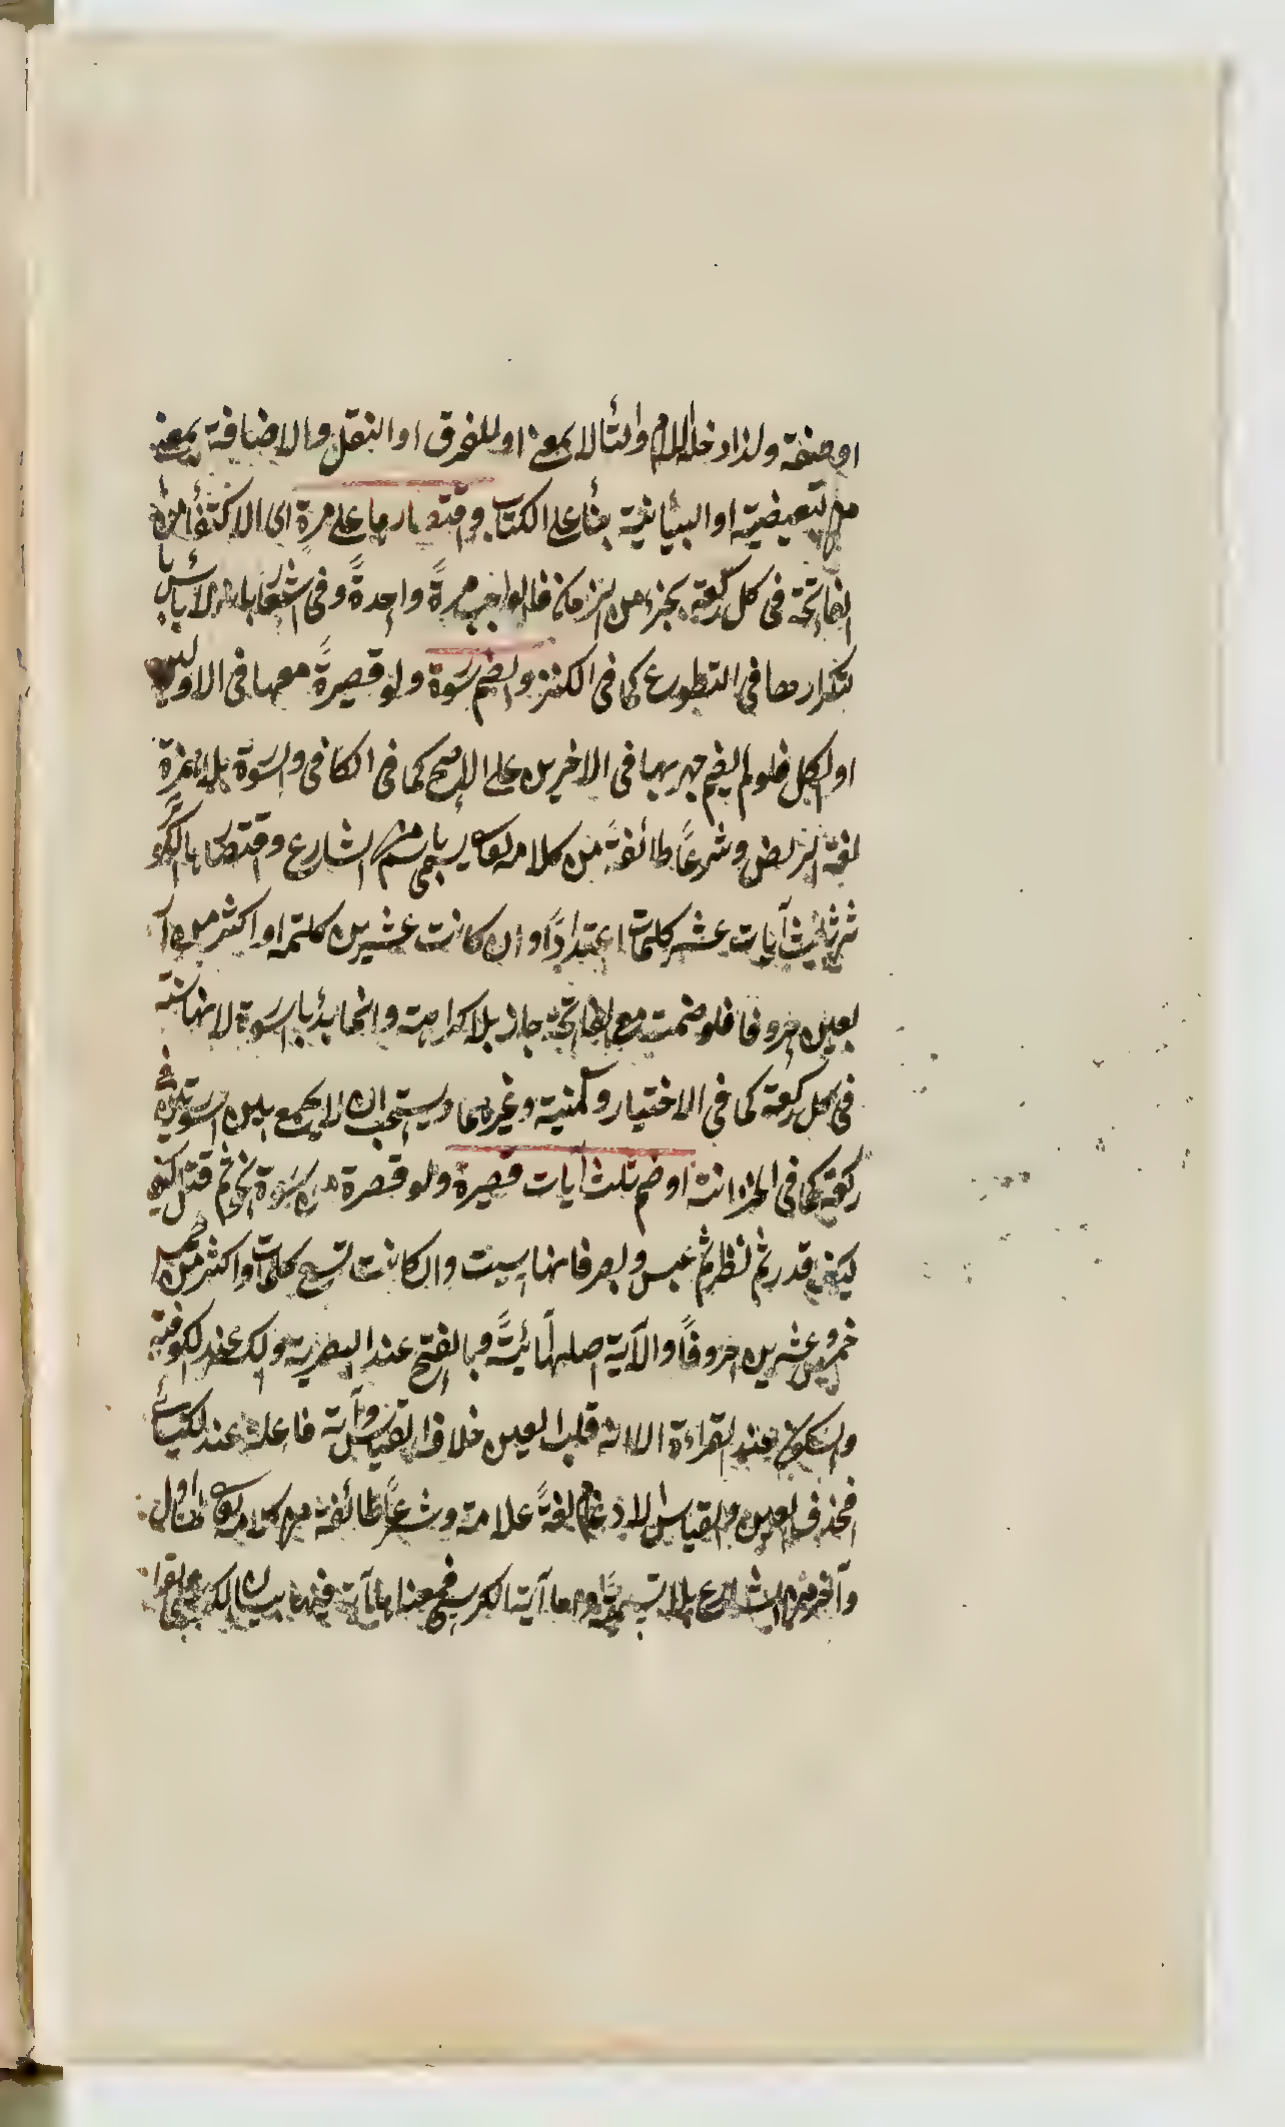 او صفة ولذا دخله اللام والتا لا بمعنى او للفرق او النقل والاضافة بمعنى
من التبعيضية او البيانية بناء على الكتاب واقتصارها على مرة اى الاكتفا من
الفاتحة فى كل ركعة بجزء من الزمان فالواجب مرةً واحدةً وفى اشعار بان لا باس
بتكرارها فى التطوع كما فى الكنز والضم سورة ولو قصيرةً معها فى الاوليين
او الكل فلو لم يضم جهر بها فى الاخريين على الاصح كما فى الكافى والسورة بلا همزة
لغة وشرعاً طائفة من كلامه تعالى يسمى باسم من الشارع واقتصارها بالكو
ثر ثلث آيات عشر كلمات اعتداداً وان كانت عشرين كلمة او اكثر من ا
بعين حروفا فلو ضمت مع الفاتحة جاز بلا كراهة وانما بدئ بالسورة لانها سنة
فى كل ركعة كما فى الاختيار والمنية وغيرهما ويستحب ان لا يجمع بين السورتين فى
ركعة كما فى الخزانة او ضم ثلث آيات قصيرة ولو قصرة من سورة نحو ثم قتل كيف
كيف قدر ثم نظر ثم عبس وبسر فانها ست وان كانت تسع كلمات واكثر من خمس
خمس وعشرين حروفاً والآية اصلها ائية وبالفتح عند البصرية والكسر عند الكوفية
والسكون عند القراءة الا انه قلب العين خلاف القياس وآية فاعلة عند الكسائى
فحذف العين والقياس الادغام لغةً علامة وشرعاً طائفة من كلامه تعالى لها اول
وآخر من الشارع بلا تسمية واما آية الكرسى فمعناها آية فيها بيان الكرسى